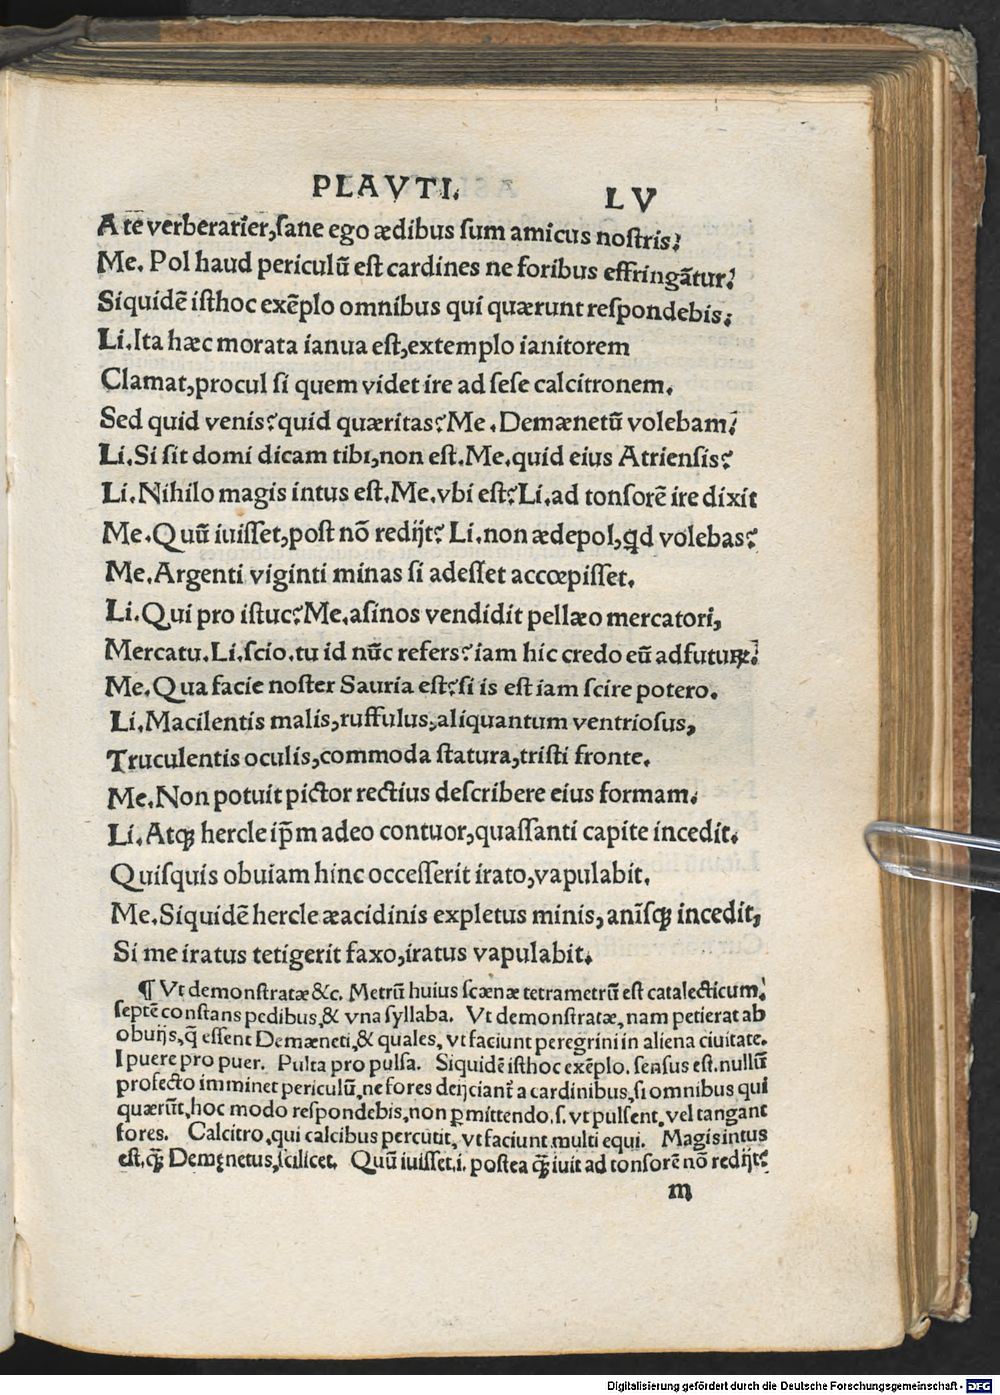 PLAVTI. LV
A te verberarier,ſane ego ædibus ſum amicus noſtris?
Me. Pol haud periculũ eſt cardines ne foribus effringãtur?
Siquidẽ iſthoc exẽplo omnibus qui quærunt reſpondebis;
Li.Ita hæc morata ianua eſt,extemplo ianitorem
Clamat,procul ſi quem videt ire ad ſeſe calcitronem.
Sed quid venis?quid quæritas?Me.Demænetũ volebam?
Li.Si ſit domi dicam tibi,non eſt.Me.quid eius Atrienſis?
Li.Nihilo magis intus eſt.Me.vbi eſt?Li.ad tonſorẽ ire dixit
Me.Quũ iuiſſet,poſt nõ redijt? Li.non ædepol,qd volebas?
Me.Argenti viginti minas ſi adeſſet accœpiſſet.
Li.Qui pro iſtuc?Me.aſinos vendidit pellæo mercatori,
Mercatu.Li.ſcio.tu id nũc refers?iam hic credo eũ adfuturꝝ?
Me.Qua facie noſter Sauria eſt?ſi is eſt iam ſcire potero.
Li.Macilentis malis,ruffulus,aliquantum ventrioſus,
Truculentis oculis,commoda ſtatura,triſti fronte.
Me.Non potuit pictor rectius deſcribere eius formam.
Li.Atqꝫ hercle ip̃m adeo contuor,quaſſanti capite incedit.
Quiſquis obuiam hinc occeſſerit irato,vapulabit.
Me.Siquidẽ hercle æacidinis expletus minis,anĩſqꝫ incedit,
Si me iratus tetigerit faxo,iratus vapulabit.
¶ Vt demonſtratæ &c. Metrũ huius ſcænæ tetrametrũ eſt catalecticum.
ſeptẽ conſtans pedibus,& vna ſyllaba. Vt demonſtratæ, nam petierat ab
obuijs,q̃ eſſent Demæneti,& quales, vt faciunt peregrini in aliena ciuitate.
I puere pro puer. Pulta pro pulſa. Siquidẽ iſthoc exẽplo. ſenſus eſt. nullũ
profecto imminet periculũ,ne fores deijciant̃ a cardinibus,ſi omnibus qui
quærũt,hoc modo reſpondebis,non ꝑmittendo.ſ. vt pulſent, vel tangant
fores. Calcitro,qui calcibus percutit, vt faciunt multi equi. Magis intus
eſt.qꝫ̃ Demęnetus,ſcilicet. Quũ iuiſſet.i. poſtea qꝫ̃ iuit ad tonſorẽ nõ redijt?
m
Digitalisierung gefördert durch die Deutsche Forschungsgemeinschaft - DFG